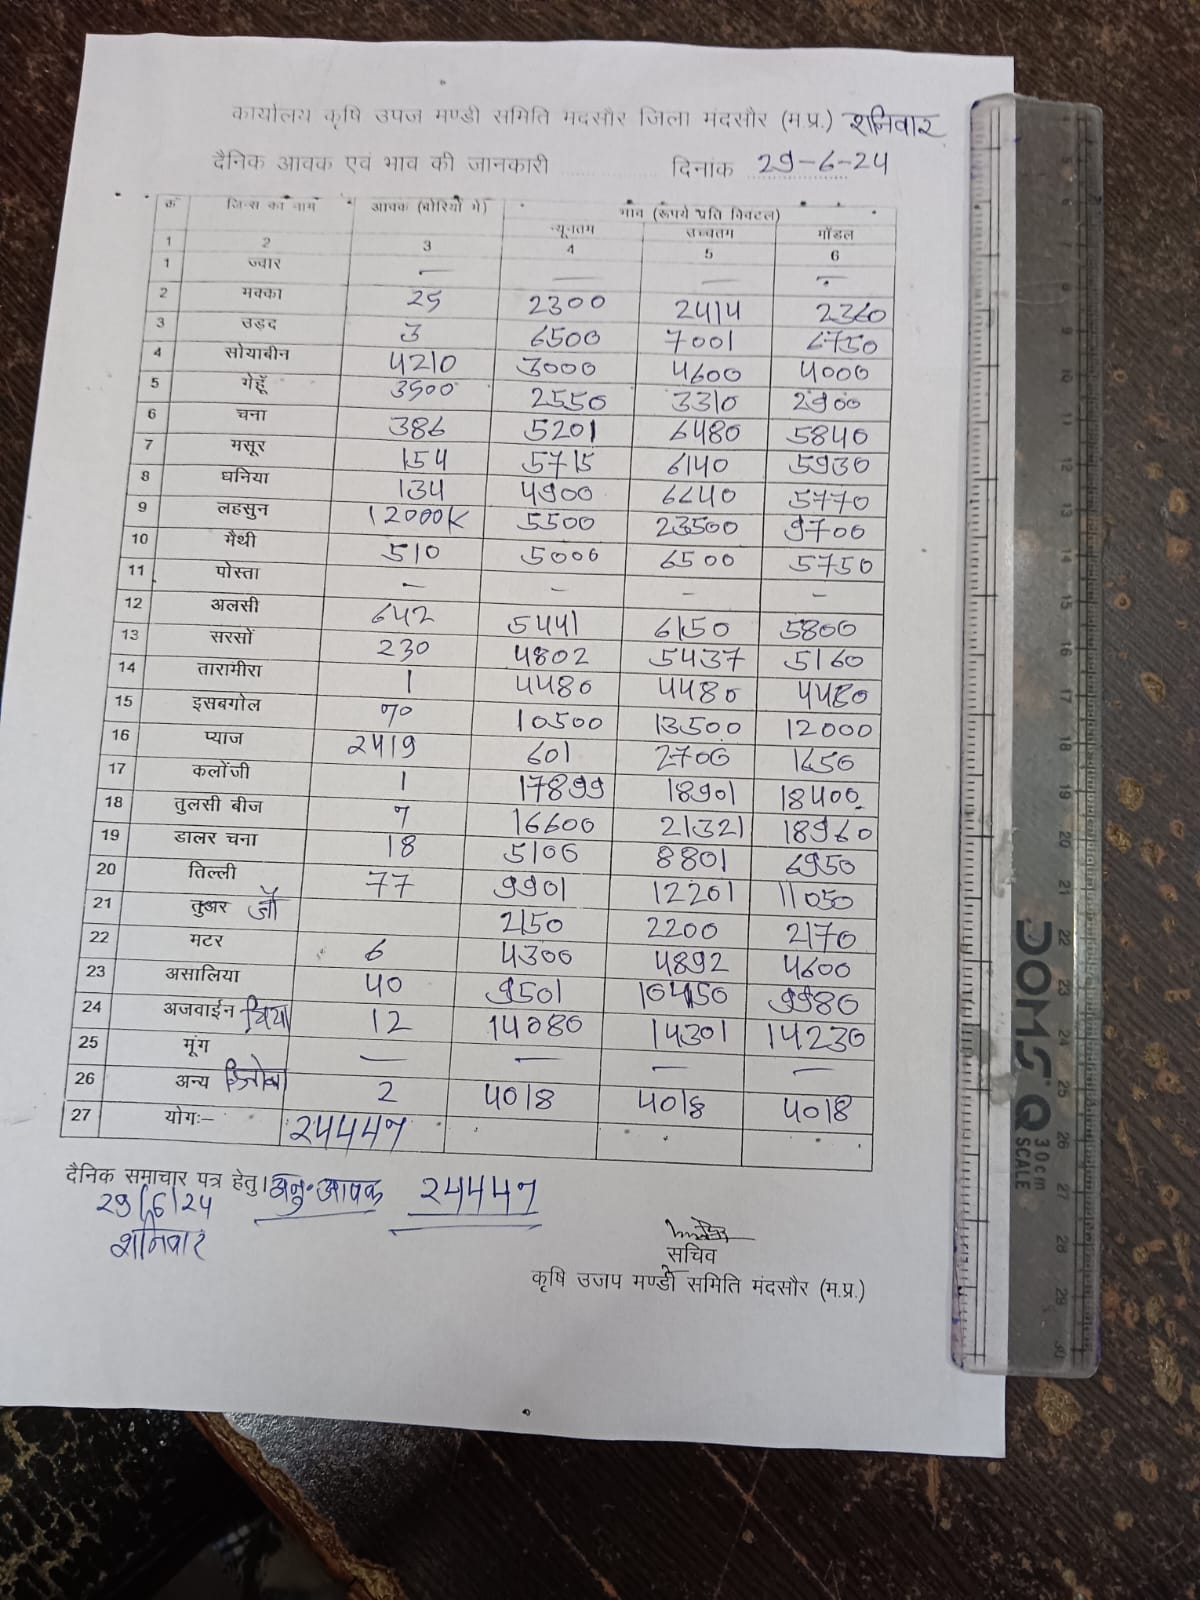 कार्यालय कृषि उपज मण्डी समिति मदसौर जिला मंदसौर (म.प्र.) शनिवार
दैनिक आवक एवं भाव की जानकारी .............. दिनांक 29-6-24
क्र जिन्स का नाम आवक (बोरियों में) भाव (रूपये प्रति क्विंटल)
न्यूनतम उच्चतम मॉडल
1 2 3 4 5 6
1 ज्वार — — — —
2 मक्का 25 2300 2414 2360
3 उड़द 3 6500 7001 6750
4 सोयाबीन 4210 3000 4600 4000
5 गेहूँ 3500 2550 3310 2900
6 चना 386 5201 6480 5840
7 मसूर 154 5715 6140 5930
8 धनिया 134 4900 6640 5770
9 लहसुन 12000K 5500 23500 9700
10 मैथी 510 5000 6500 5750
11 पोस्ता - - - -
12 अलसी 642 5441 6150 5800
13 सरसों 230 4802 5437 5160
14 तारामीरा 1 4480 4480 4480
15 इसबगोल 70 10500 13500 12000
16 प्याज 2419 601 2700 1650
17 कलोंजी 1 17899 18901 18400
18 तुलसी बीज 7 16600 21321 18960
19 डालर चना 18 5100 8801 6950
20 तिल्ली 77 9901 12201 11050
21 तुअर जौ 2150 2200 2170
22 मटर 6 4300 4892 4600
23 असालिया 40 9501 10450 9980
24 अजवाईन चिया 12 14080 14301 14230
25 मूंग — — — —
26 अन्य 2 4018 4018 4018
27 योगः— 24447
दैनिक समाचार पत्र हेतु। अनु. आवक 24447
29/6/24
शनिवार
सचिव
कृषि उजप मण्डी समिति मंदसौर (म.प्र.)
DOMS Q
30cm
SCALE